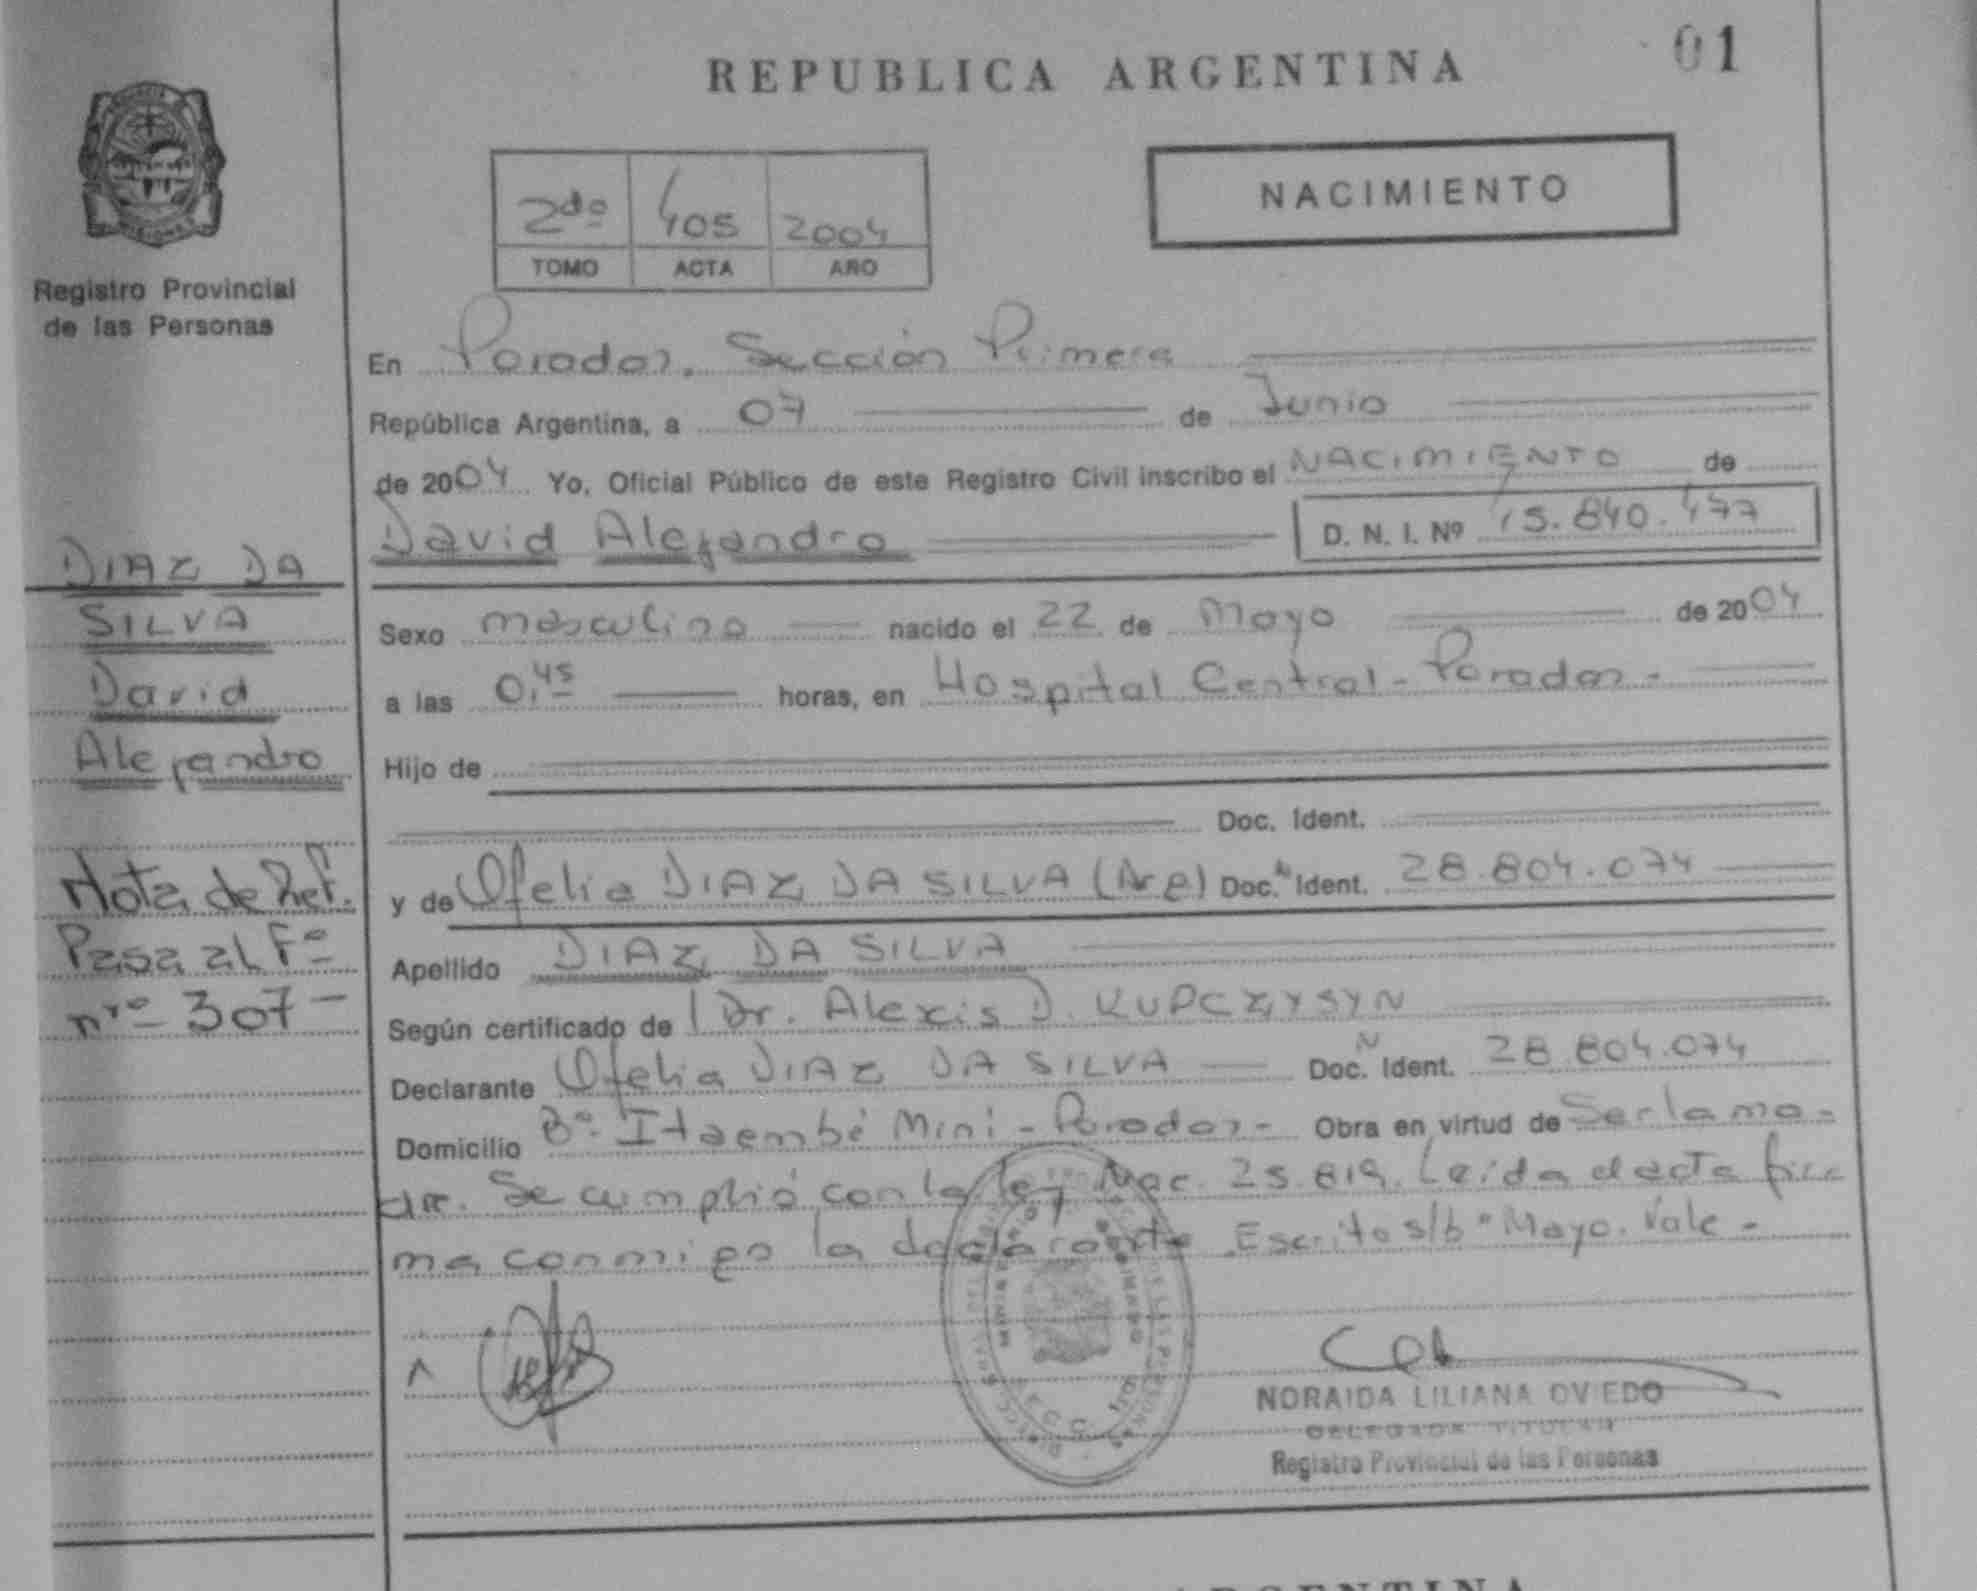 REPUBLICA ARGENTINA
01
NACIMIENTO
2do 405 2004
TOMO ACTA AÑO
Registro Provincial
de las Personas
En Posadas, Sección Primera
República Argentina, a 07 de Junio
de 2004 Yo, Oficial Público de este Registro Civil inscribo el NACIMIENTO de
David Alejandro D. N. I. Nº 45.840.477
DIAZ DA
SILVA
David
Alejandro
Nota de Ref.
Pasa al Fº
nrº 307-
Sexo masculino nacido el 22 de Mayo de 2004
a las 0,45 horas, en Hospital Central - Posadas -
Hijo de
Doc. Ident.
y de Ofelia DIAZ DA SILVA (Arg) Doc. Ident. 28.804.074
Apellido DIAZ DA SILVA
Según certificado de Dr. Alexis D. KUPCZYSYN
Declarante Ofelia DIAZ DA SILVA Doc. Ident. 28.804.074
Domicilio Bº Itaembé Mini - Posadas - Obra en virtud de Ser la ma-
dre. Se cumplió con la ley Nac. 25.819. Leída el acta fir
ma conmigo la declarante Escrito s/b "Mayo. Vale -
NORAIDA LILIANA OVIEDO
DELEGADA TITULAR
Registro Provincial de las Personas